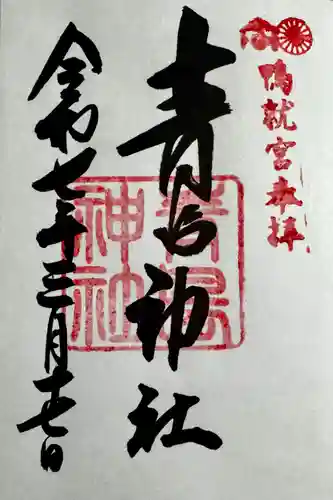 鴨就宮奉拝
青島神社
令和七年三月十七日
青島神社